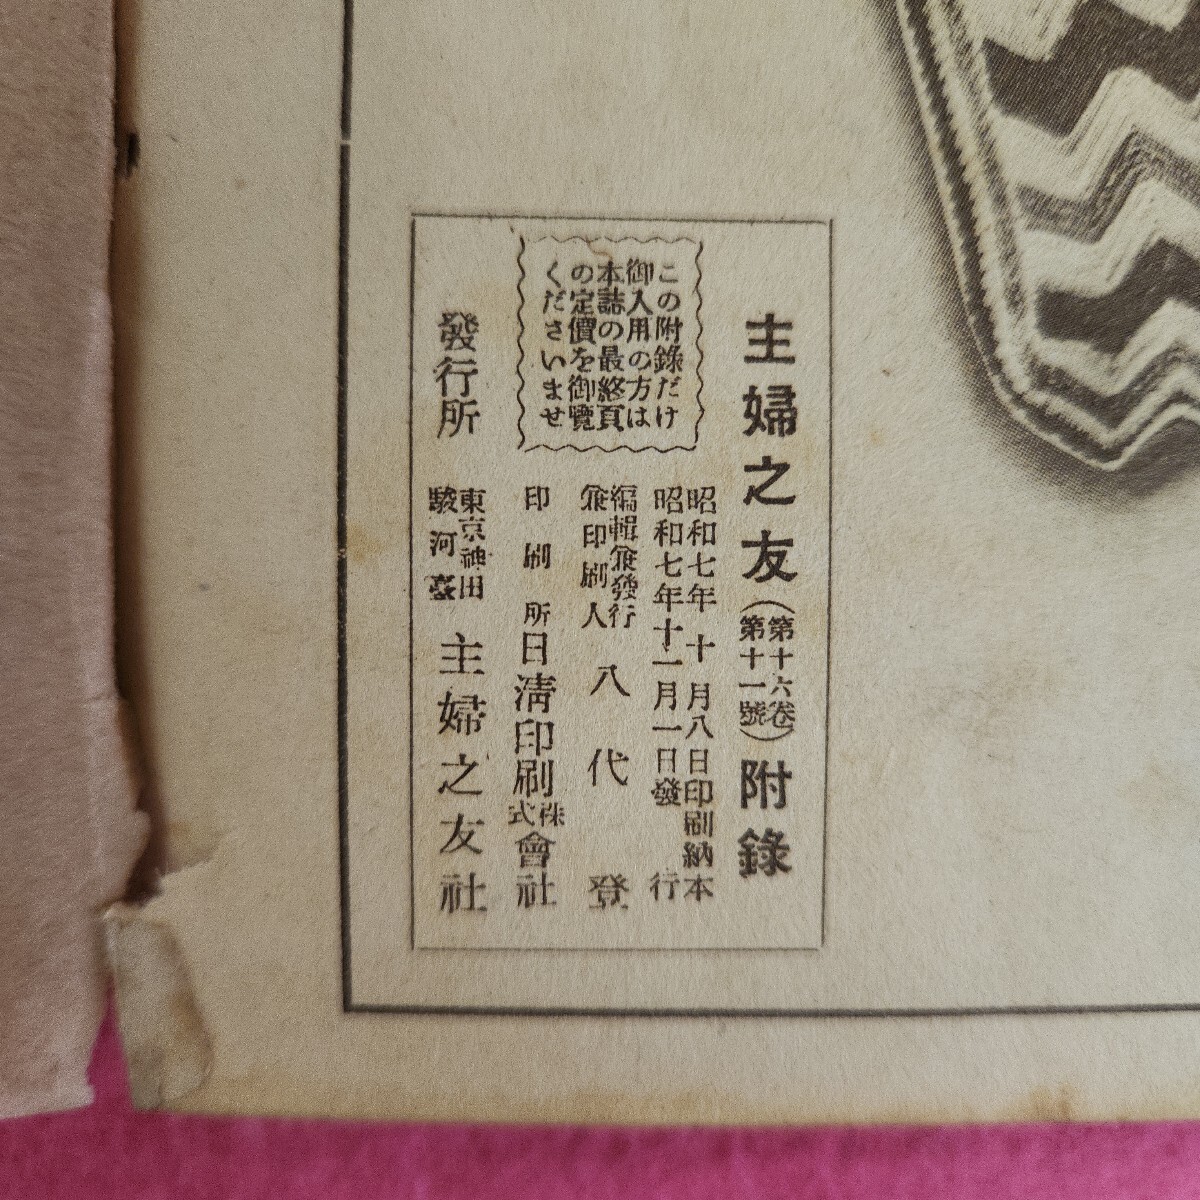 主婦之友（第十六卷第十一號）附錄
昭和七年十月八日印刷納本
昭和七年十一月一日發行
この附錄だけ
御入用の方は
本誌の最終頁
の定價を御覽
くださいませ
編輯兼發行
兼印刷人 八代登
印刷所 日淸印刷株式會社
發行所 東京神田駿河臺 主婦之友社